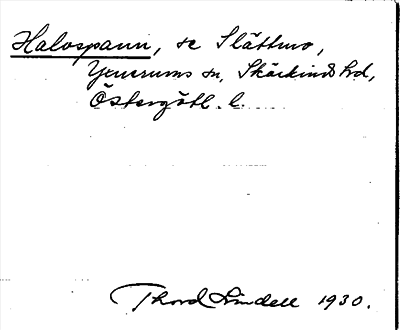 Halvspann, se Slättmo,
Yxnerums sn, Skärkinds hd,
Östergötl. l.
Thord Lindell 1930.